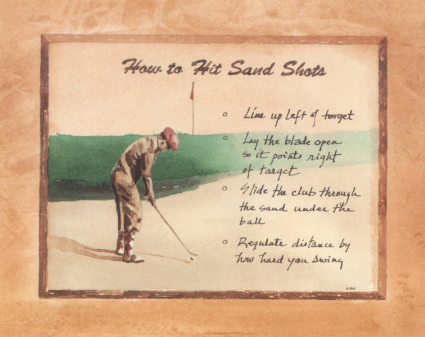 How to Hit Sand Shots
Line up left of target
Lay the blade open
so it points right
of target
Slide the club through
the sand under the
ball
Regulate distance by
how hard you swing